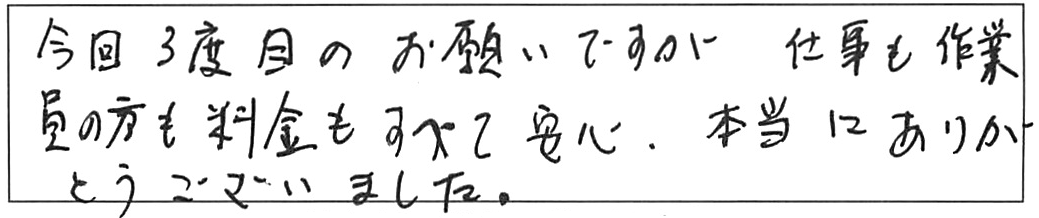 今回3度目のお願いですが 仕事も作業
員の方も料金もすべて安心. 本当にありが
とうございました。